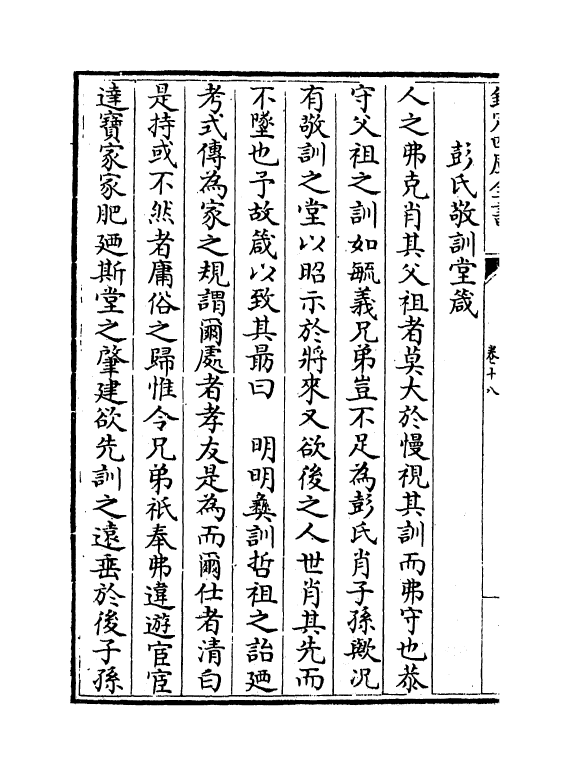 欽定四庫全書
卷十八
彭氏敬訓堂箴
人之弗克肖其父祖者莫大於慢視其訓而弗守也恭
守父祖之訓如毓義兄弟豈不足為彭氏肖子孫歟況
有敬訓之堂以昭示於將來又欲後之人世肖其先而
不墜也予故箴以致其最曰　明明彝訓哲祖之詒廼
考式傳為家之規謂爾處者孝友是為而爾仕者清白
是持或不然者庸俗之歸惟令兄弟祇奉弗違遊宦宦
達寶家家肥廼斯堂之肇建欲先訓之遠垂於後子孫